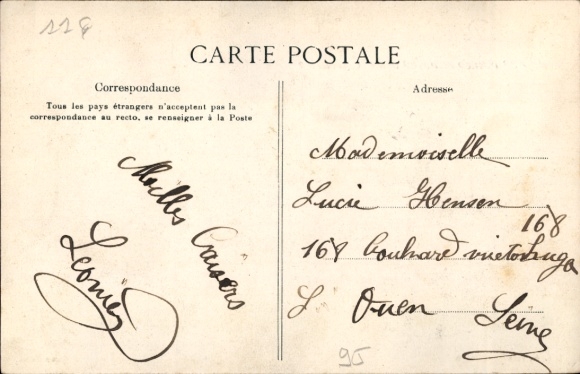 118
CARTE POSTALE
Correspondance
Tous les pays étrangers n'acceptent pas la
correspondance au recto, se renseigner à la Poste
Milles Baisers
Léonie
Adresse
Mademoiselle
Lucie Hensen
168
168 bouhvard victor hugo
St Ouen Seine
95